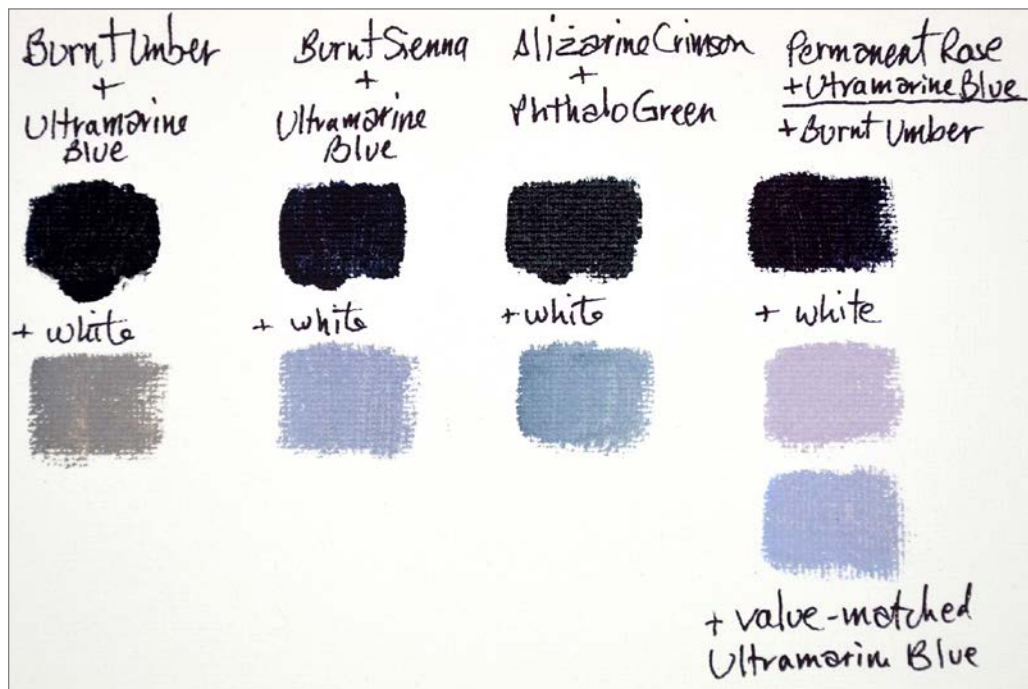 Burnt Umber
+
Ultramarine
Blue
+ white
Burnt Sienna
+
Ultramarine
Blue
+ white
Alizarine Crimson
+
Phthalo Green
+ white
Permanent Rose
+ Utramarine Blue
+ Burnt Umber
+ white
+ value-matched
Ultramarin Blue